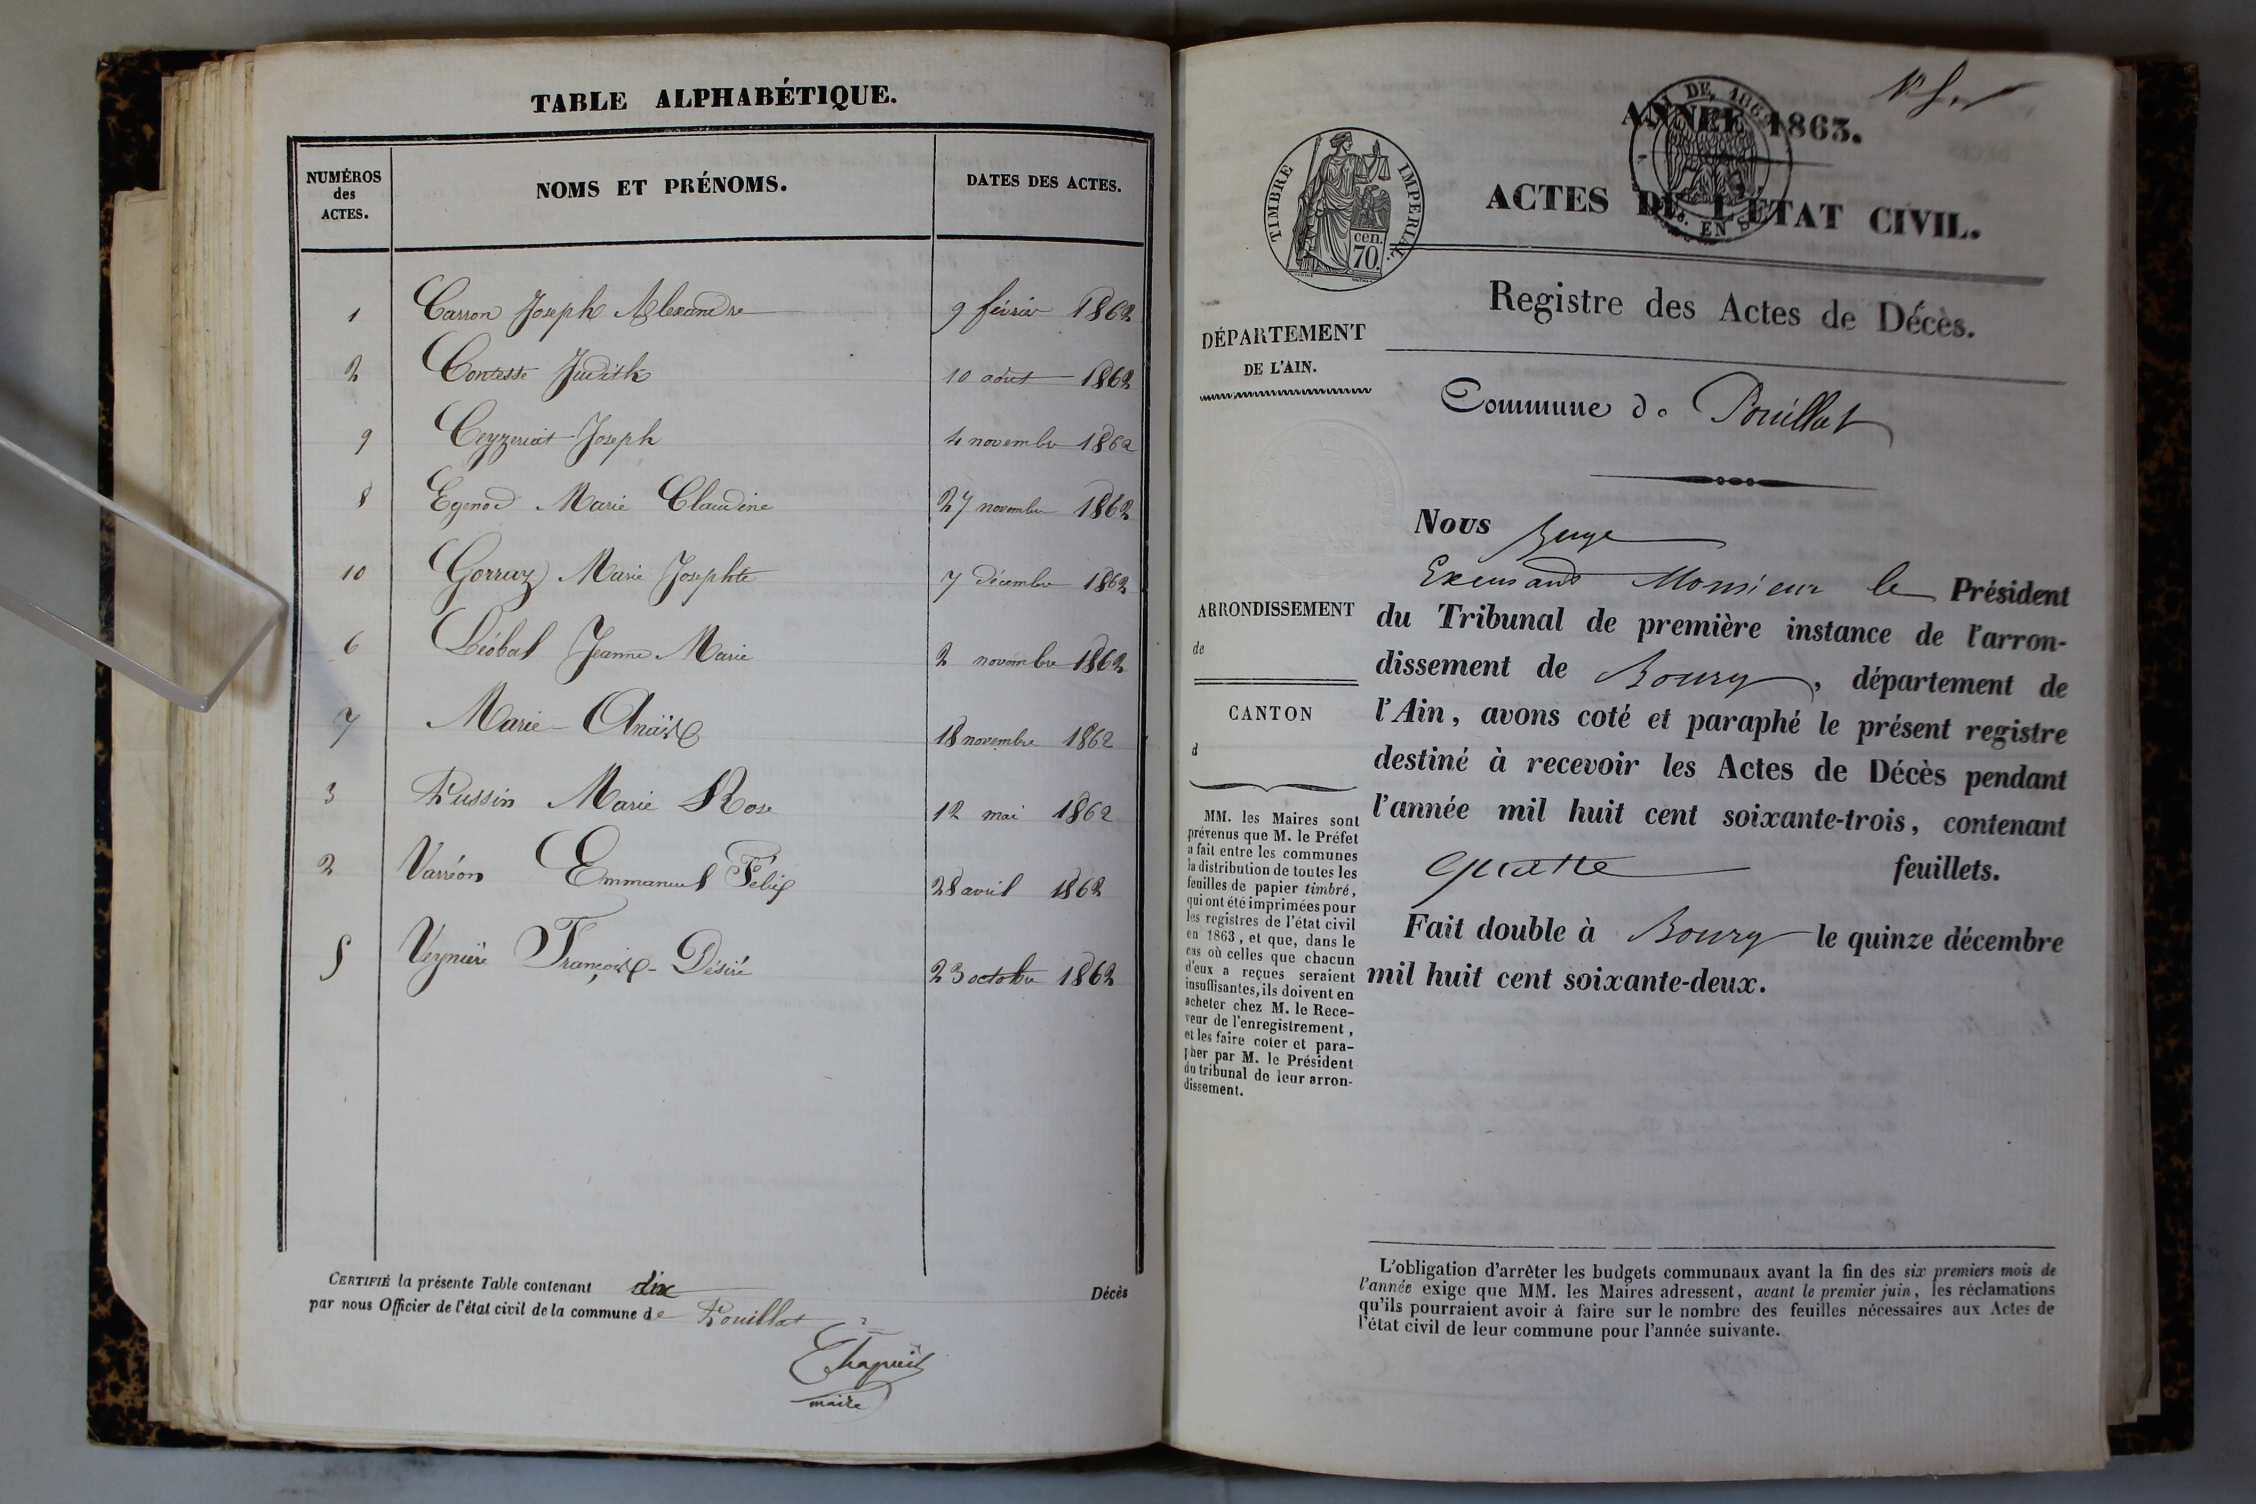 TABLE ALPHABÉTIQUE.
NUMÉROS des ACTES.
NOMS ET PRÉNOMS.
DATES DES ACTES.
1 Carron Joseph Alexandre 9 février 1862
2 Contesse Judith 10 août 1862
9 Ceyzeriat Joseph 4 novembre 1862
8 Egenod Marie Claudine 27 novembre 1862
10 Gorruz Marie Josephte 7 décembre 1862
6 Léobal Jeanne Marie 2 novembre 1862
7 Marie Anaïse 18 novembre 1862
3 Pussin Marie Rose 12 mai 1862
2 Varréon Emmanuel Félix 28 avril 1862
5 Veynière François-Désiré 23 octobre 1862
CERTIFIÉ la présente Table contenant dix Décès
par nous Officier de l'état civil de la commune de Pouillat
Chapuis
maire
ANNÉE 1863.
ACTES DE L'ÉTAT CIVIL.
TIMBRE IMPÉRIAL
70 cen.
Registre des Actes de Décès.
DÉPARTEMENT
DE L'AIN.
Commune de Pouillat
ARRONDISSEMENT
de
CANTON
d
Nous Juge
Exerçant Monsieur le Président
du Tribunal de première instance de l'arron-
dissement de Bourg, département de
l'Ain, avons coté et paraphé le présent registre
destiné à recevoir les Actes de Décès pendant
l'année mil huit cent soixante-trois, contenant
quatre feuillets.
Fait double à Bourg le quinze décembre
mil huit cent soixante-deux.
MM. les Maires sont
prévenus que M. le Préfet
a fait entre les communes
la distribution de toutes les
feuilles de papier timbré,
qui ont été imprimées pour
les registres de l'état civil
en 1863, et que, dans le
cas où celles que chacun
d'eux a reçues seraient
insuffisantes, ils doivent en
acheter chez M. le Rece-
veur de l'enregistrement,
et les faire coter et para-
pher par M. le Président
du tribunal de leur arron-
dissement.
L'obligation d'arrêter les budgets communaux avant la fin des six premiers mois de
l'année exige que MM. les Maires adressent, avant le premier juin, les réclamations
qu'ils pourraient avoir à faire sur le nombre des feuilles nécessaires aux Actes de
l'état civil de leur commune pour l'année suivante.